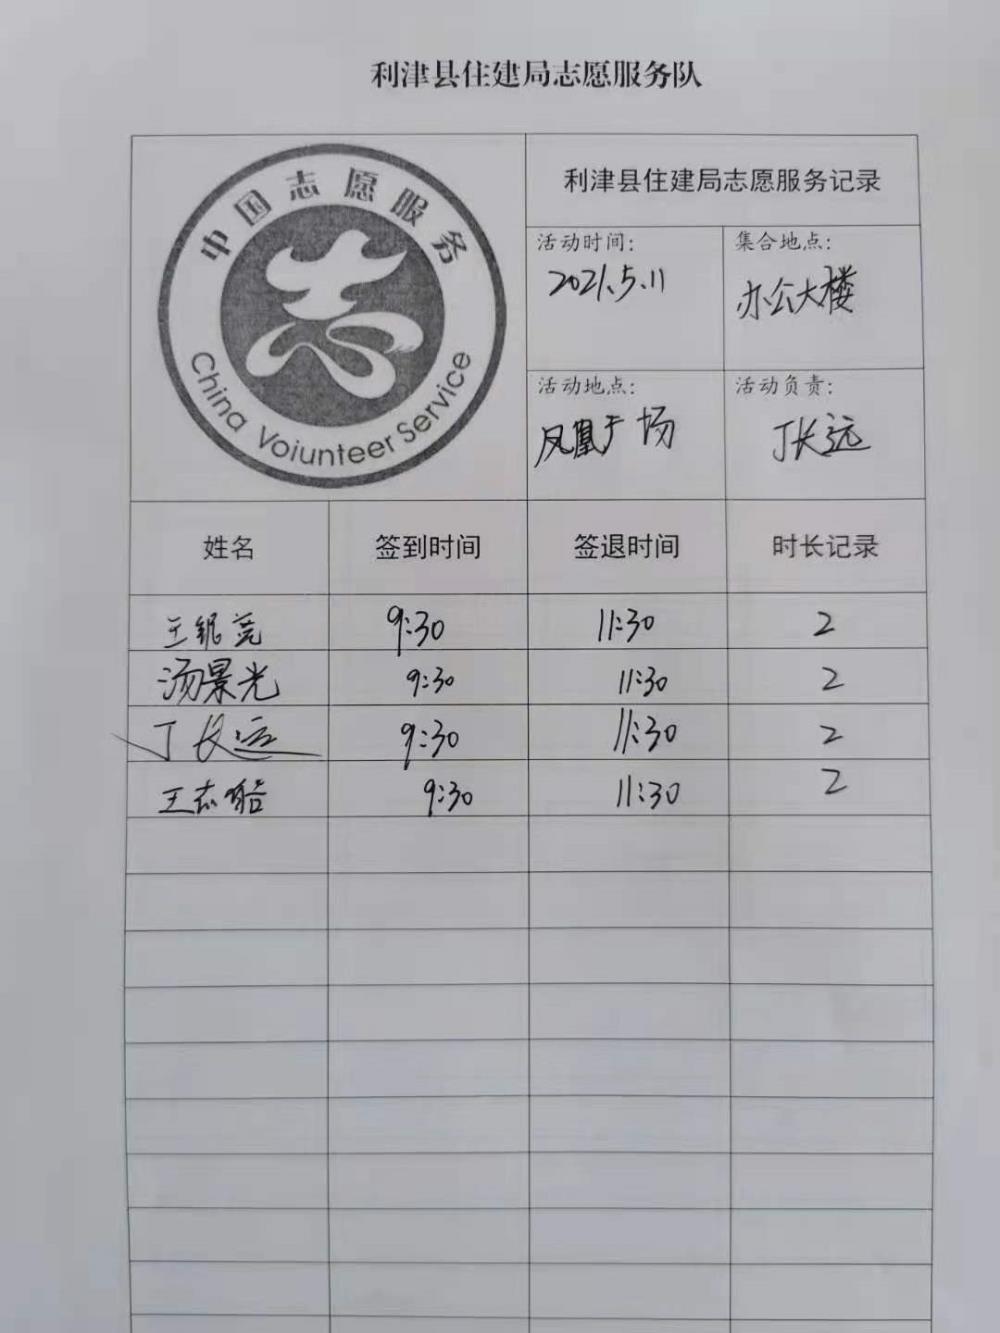 利津县住建局志愿服务队
中国志愿服务
志
China Voiunteer Service
利津县住建局志愿服务记录
活动时间: 集合地点:
2021.5.11 办公大楼
活动地点: 活动负责:
凤凰广场 丁长远
姓名 签到时间 签退时间 时长记录
王 9:30 11:30 2
汤景光 9:30 11:30 2
丁长远 9:30 11:30 2
王志 9:30 11:30 2